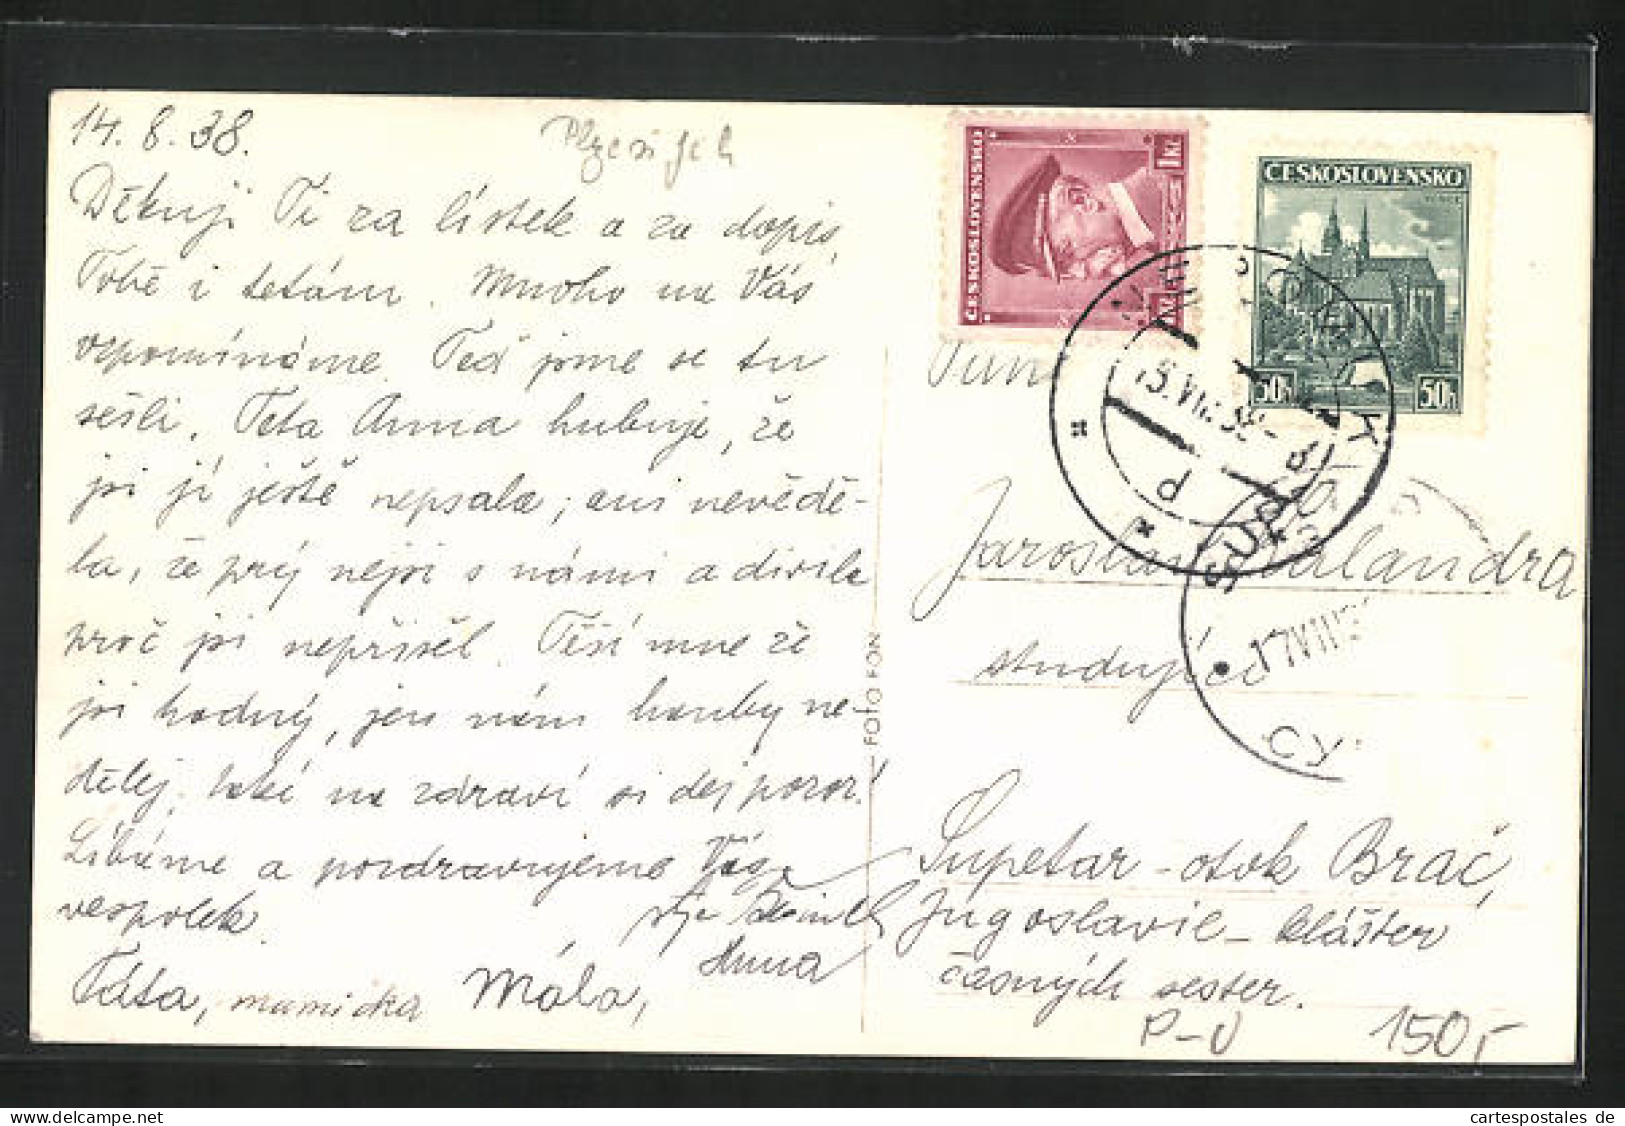 14. 8. 38.
Děkuji Ti za lístek a za dopis
Tobě i tetám. Mnoho na Vás
vzpomínáme. Teď jsme se tu
sešli. Teta Anna hubuje, že
jsi jí ještě nepsala, ani nevědě-
la, že prý nejsi s námi a divila
proč jsi nepřišel. Těší mne že
jsi hodný, jen nám houby ne-
dělej, také na zdraví si dej pozor!
Líbáme a pozdravujeme Vás
vespolek.
Táta, mamička Mála,
Anna
ČESKOSLOVENSKO
1 Kč
ČESKOSLOVENSKO
50h 50h
FOTO FON
Pan
Jaroslav Kalandra
studující
Supetar - otok Brač,
Jugoslavie - klášter
časných sester.
P-U 150,-
cartespostales de